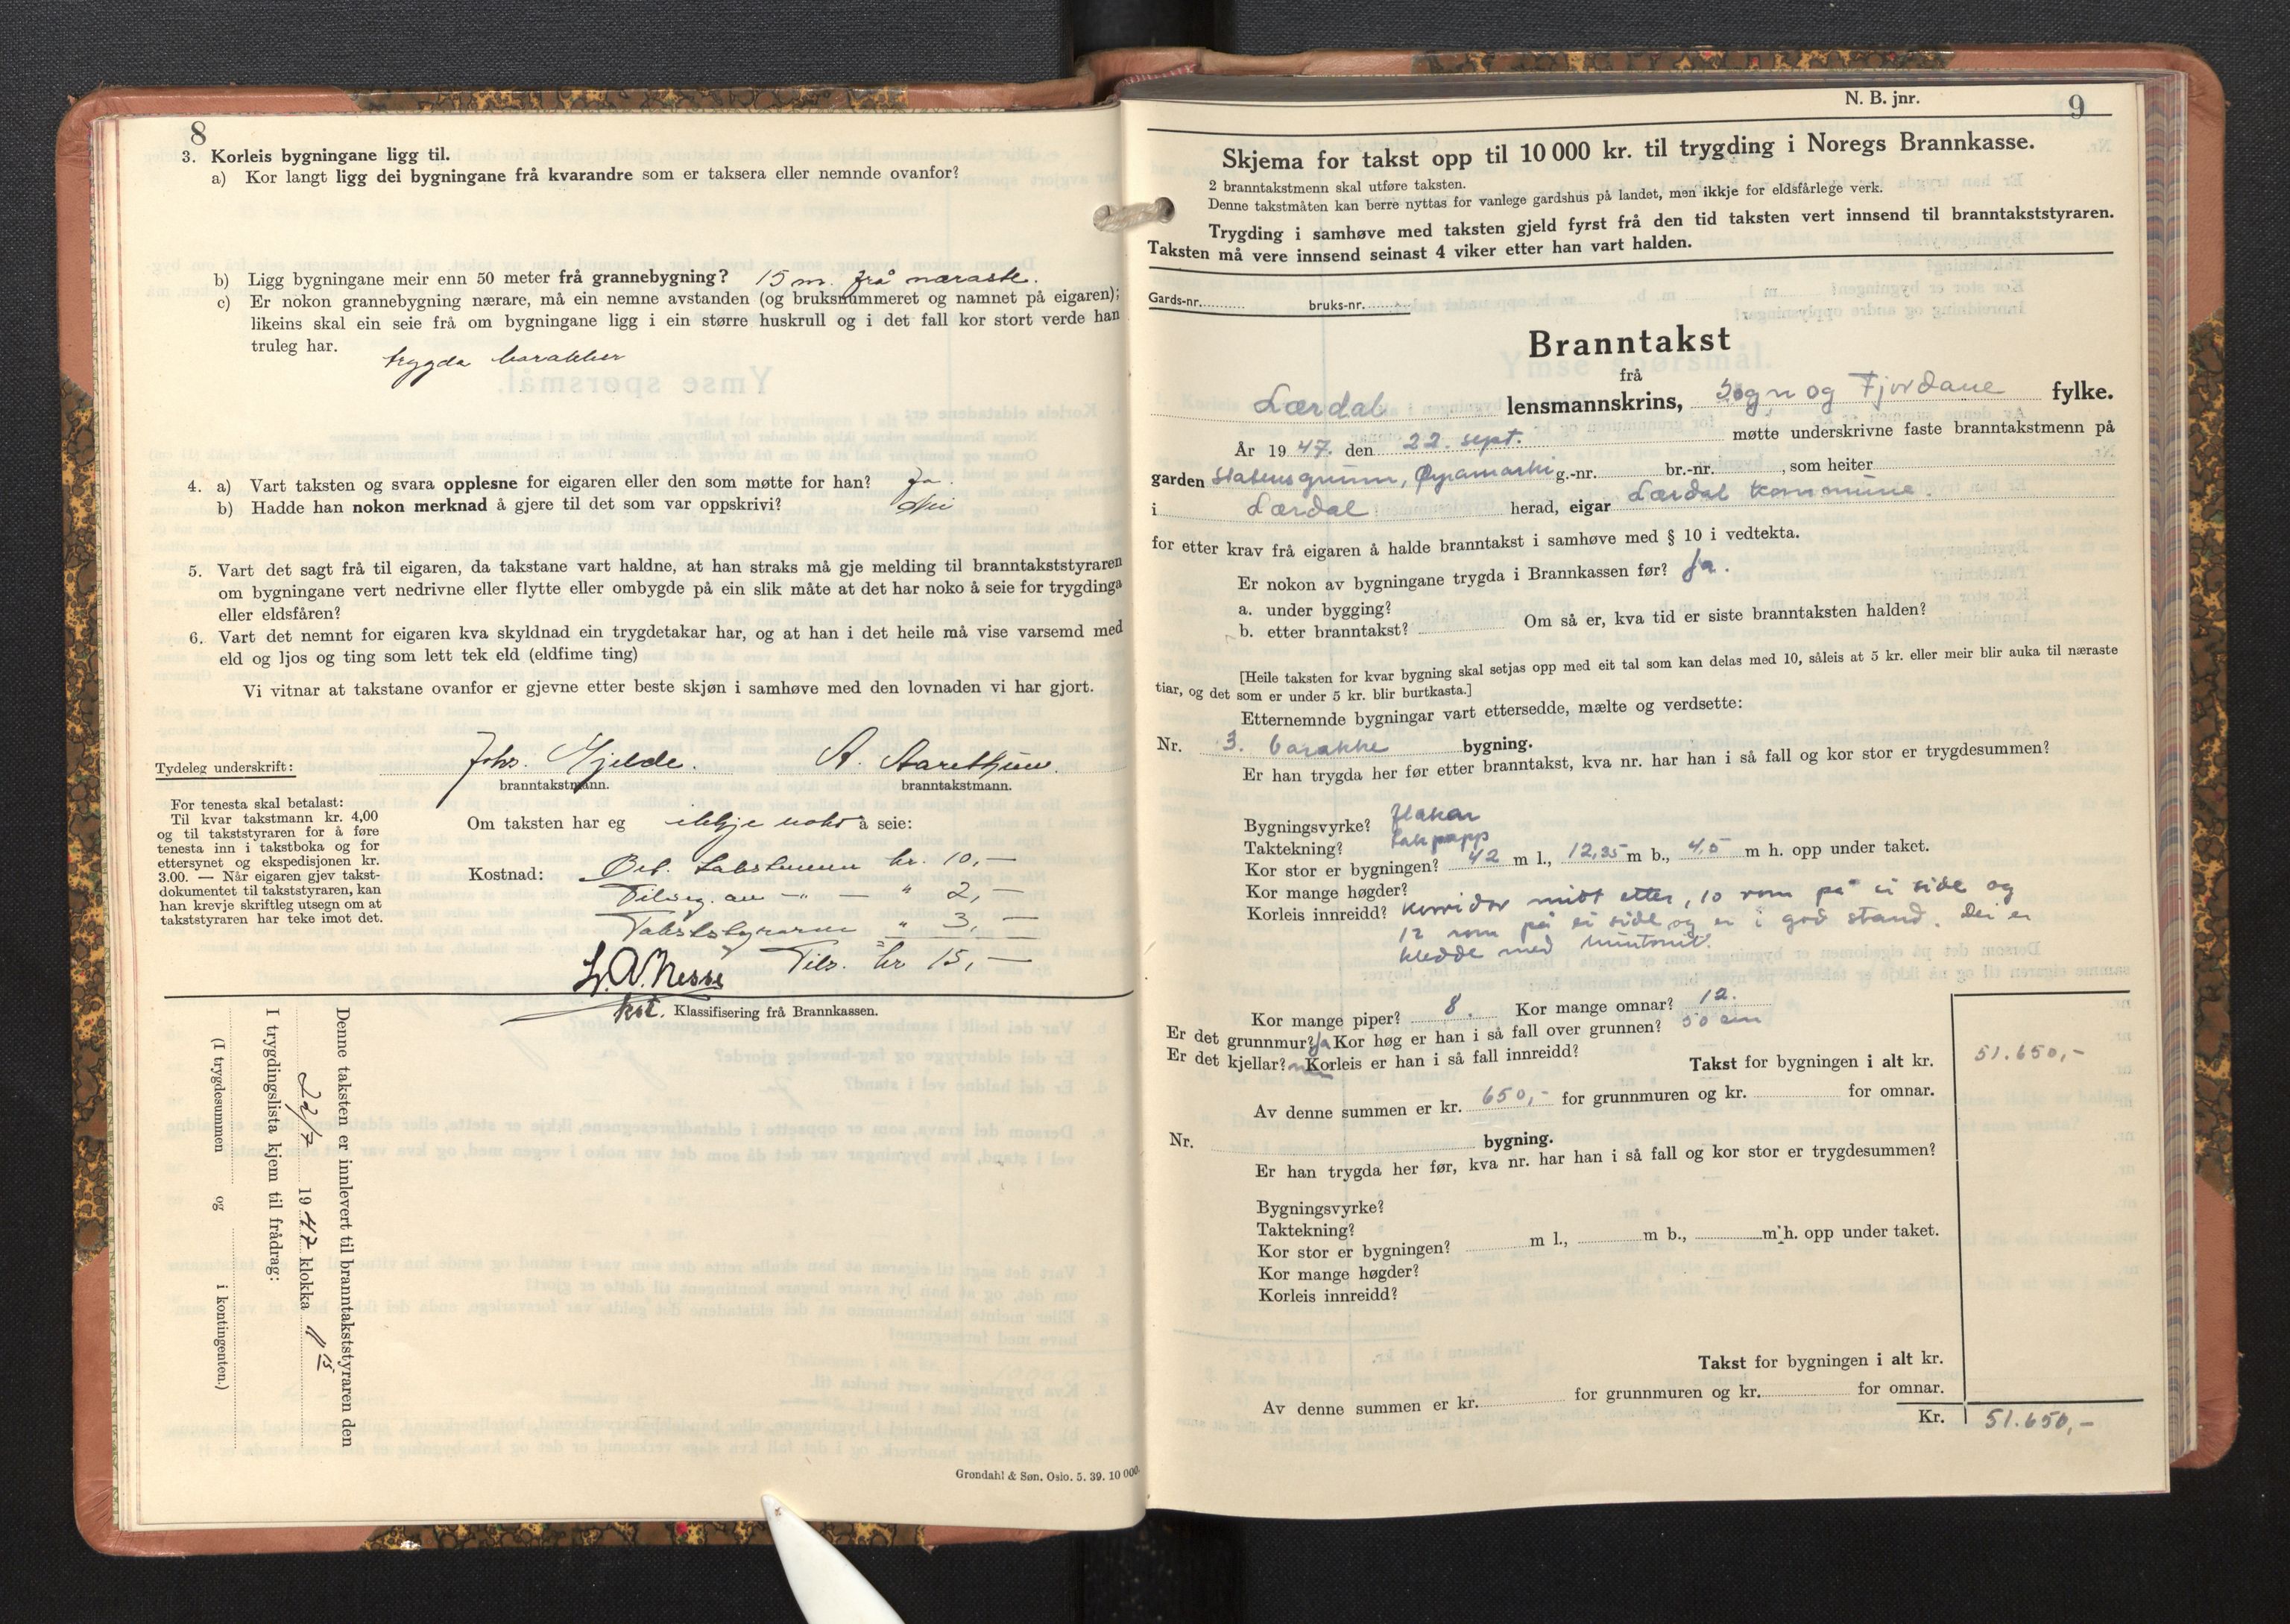 8
3. Korleis bygningane ligg til.
a) Kor langt ligg dei bygningane frå kvarandre som er taksera eller nemnde ovanfor?
b) Ligg bygningane meir enn 50 meter frå grannebygning? 15 m. frå næraste.
c) Er nokon grannebygning nærare, må ein nemne avstanden (og bruksnummeret og namnet på eigaren);
likeins skal ein seie frå om bygningane ligg i ein større huskrull og i det fall kor stort verde han
truleg har.
trygda barakker
4. a) Vart taksten og svara opplesne for eigaren eller den som møtte for han? Ja.
b) Hadde han nokon merknad å gjere til det som var oppskrivi? Nei
5. Vart det sagt frå til eigaren, da takstane vart haldne, at han straks må gje melding til branntakststyraren
om bygningane vert nedrivne eller flytte eller ombygde på ein slik måte at det har noko å seie for trygdinga
eller eldsfåren?
6. Vart det nemnt for eigaren kva skyldnad ein trygdetakar har, og at han i det heile må vise varsemd med
eld og ljos og ting som lett tek eld (eldfime ting)
Vi vitnar at takstane ovanfor er gjevne etter beste skjøn i samhøve med den lovnaden vi har gjort.
Tydeleg underskrift: Johs. Gjelde. A.
branntakstmann. branntakstmann.
For tenesta skal betalast:
Til kvar takstmann kr. 4,00
og til takststyraren for å føre
tenesta inn i takstboka og for
ettersynet og ekspedisjonen kr.
3.00. — Når eigaren gjev takst-
dokumentet til takststyraren, kan
han krevje skriftleg utsegn om at
takststyraren har teke imot det.
Om taksten har eg ikkje noko å seie:
Kostnad: Bet. takstmenn kr. 10,—
Tilseg. av —"— — " 2,—
Takststyraren " 3,—
Tils. kr 15,—
L. A. Nesse
kst.
Klassifisering frå Brannkassen.
Denne taksten er innlevert til branntakststyraren den
22/7 1947 klokka 11 15
I trygdingslista kjem til frådrag:
(I trygdesummen og i kontingenten.)
Grøndahl & Søn. Oslo. 5. 39. 10 000.
N. B. jnr. 9
Skjema for takst opp til 10 000 kr. til trygding i Noregs Brannkasse.
2 branntakstmenn skal utføre taksten.
Denne takstmåten kan berre nyttas for vanlege gardshus på landet, men ikkje for eldsfårlege verk.
Trygding i samhøve med taksten gjeld fyrst frå den tid taksten vert innsend til branntakststyraren.
Taksten må vere innsend seinast 4 viker etter han vart halden.
Gards-nr. bruks-nr.
Branntakst
frå
Lærdal lensmannskrins, Sogn og Fjordane fylke.
År 1947. den 22. sept. møtte underskrivne faste branntakstmenn på
garden Statens grunn, Øyamarki g.-nr. br.-nr. , som heiter
i Lærdal herad, eigar Lærdal kommune.
for etter krav frå eigaren å halde branntakst i samhøve med § 10 i vedtekta.
Er nokon av bygningane trygda i Brannkassen før? Ja.
a. under bygging?
b. etter branntakst? Om så er, kva tid er siste branntaksten halden?
[Heile taksten for kvar bygning skal setjas opp med eit tal som kan delas med 10, såleis at 5 kr. eller meir blir auka til næraste
tiar, og det som er under 5 kr. blir burtkasta.]
Etternemnde bygningar vart ettersedde, mælte og verdsette:
Nr. 3. barakke bygning.
Er han trygda her før etter branntakst, kva nr. har han i så fall og kor stor er trygdesummen?
Bygningsvyrke? flakar
Taktekning? takpapp
Kor stor er bygningen? 42 m l., 12,35 m b., 4,5 m h. opp under taket.
Kor mange høgder?
Korleis innreidd? Korridor midt etter, 10 rom på ei side og
12 rom på ei side og er i god stand. Dei er
kledde med huntonit.
Kor mange piper? 8. Kor mange omnar? 12.
Er det grunnmur? Ja Kor høg er han i så fall over grunnen? 50 cm
Er det kjellar? nei Korleis er han i så fall innreidd?
Takst for bygningen i alt kr. 51.650,-
Av denne summen er kr. 650,- for grunnmuren og kr. for omnar.
Nr. bygning.
Er han trygda her før, kva nr. har han i så fall og kor stor er trygdesummen?
Bygningsvyrke?
Taktekning?
Kor stor er bygningen? m l., m b., m h. opp under taket.
Kor mange høgder?
Korleis innreidd?
Takst for bygningen i alt kr.
Av denne summen er kr. for grunnmuren og kr. for omnar.
Kr. 51.650,-